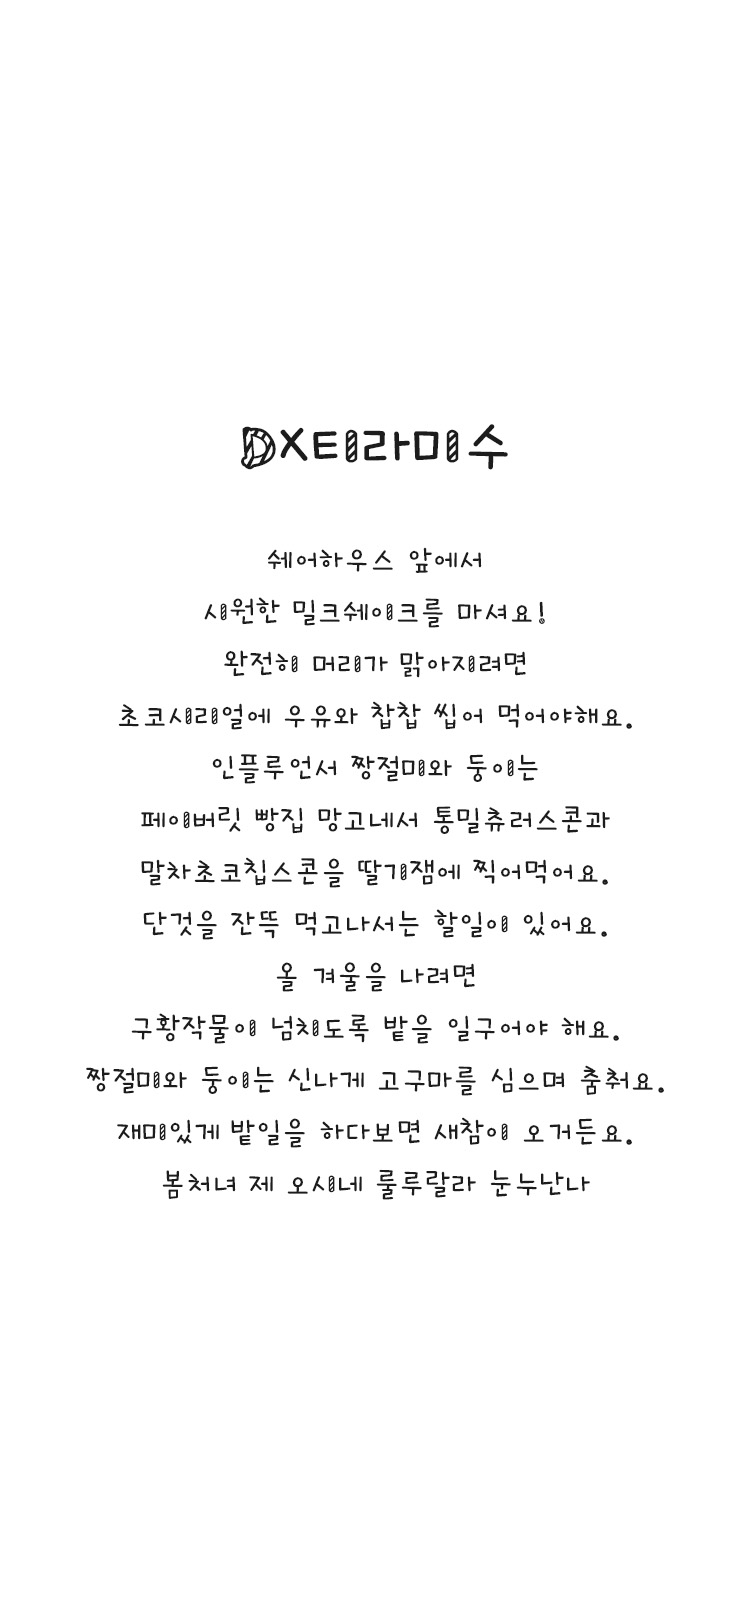 DX티라미수
쉐어하우스 앞에서
시원한 밀크쉐이크를 마셔요!
완전히 머리가 맑아지려면
초코시리얼에 우유와 찹찹 씹어 먹어야해요.
인플루언서 짱절미와 둥이는
페이버릿 빵집 망고네서 통밀츄러스콘과
말차초코칩스콘을 딸기잼에 찍어먹어요.
단것을 잔뜩 먹고나서는 할일이 있어요.
올 겨울을 나려면
구황작물이 넘치도록 밭을 일구어야 해요.
짱절미와 둥이는 신나게 고구마를 심으며 춤춰요.
재미있게 밭일을 하다보면 새참이 오거든요.
봄처녀 제 오시네 룰루랄라 눈누난나